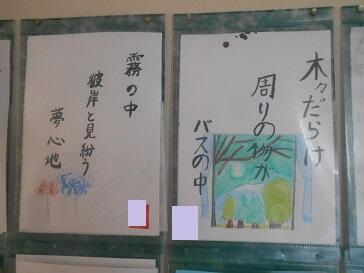 木々だらけ
周りの物が
バスの中
霧の中
彼岸と見紛う
夢心地